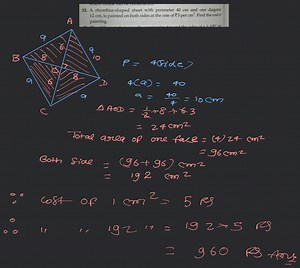 32. A rhombus-shaped sheet with perimeter 40 cm and one diagonal
12 cm, is painted on both sides at the rate of ₹5 per cm². Find the cost of
painting.
A
a
a
6
8
10
B
D
8
6
a
a
C
P = 4(side)
4(a) = 40
a = 40/4 = 10 cm
△AOD = 1/2 × 8 × 6 3
= 24 cm²
Total area of one face = (4) 24 cm²
= 96 cm²
Both side = (96 + 96) cm²
= 192 cm²
∵ Cost of 1 cm² = 5 Rs
∴ " " 192 " = 192 × 5 Rs
= 960 Rs Ans